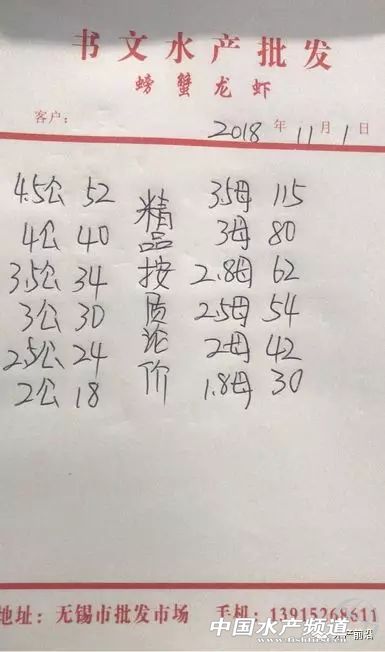 书文水产批发
螃蟹龙虾
客户：
2018年11月1日
4.5公 52
4公 40
3.5公 34
3公 30
2.5公 24
2公 18
精品按质论价
3.5母 115
3母 80
2.8母 62
2.5母 54
2母 42
1.8母 30
地址：无锡市批发市场 手机：13915268611
中国水产频道